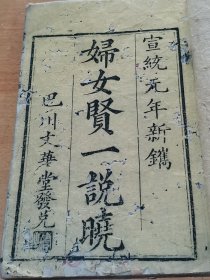 宣統元年新鐫
婦女賢一說曉
巴川文華堂發兌